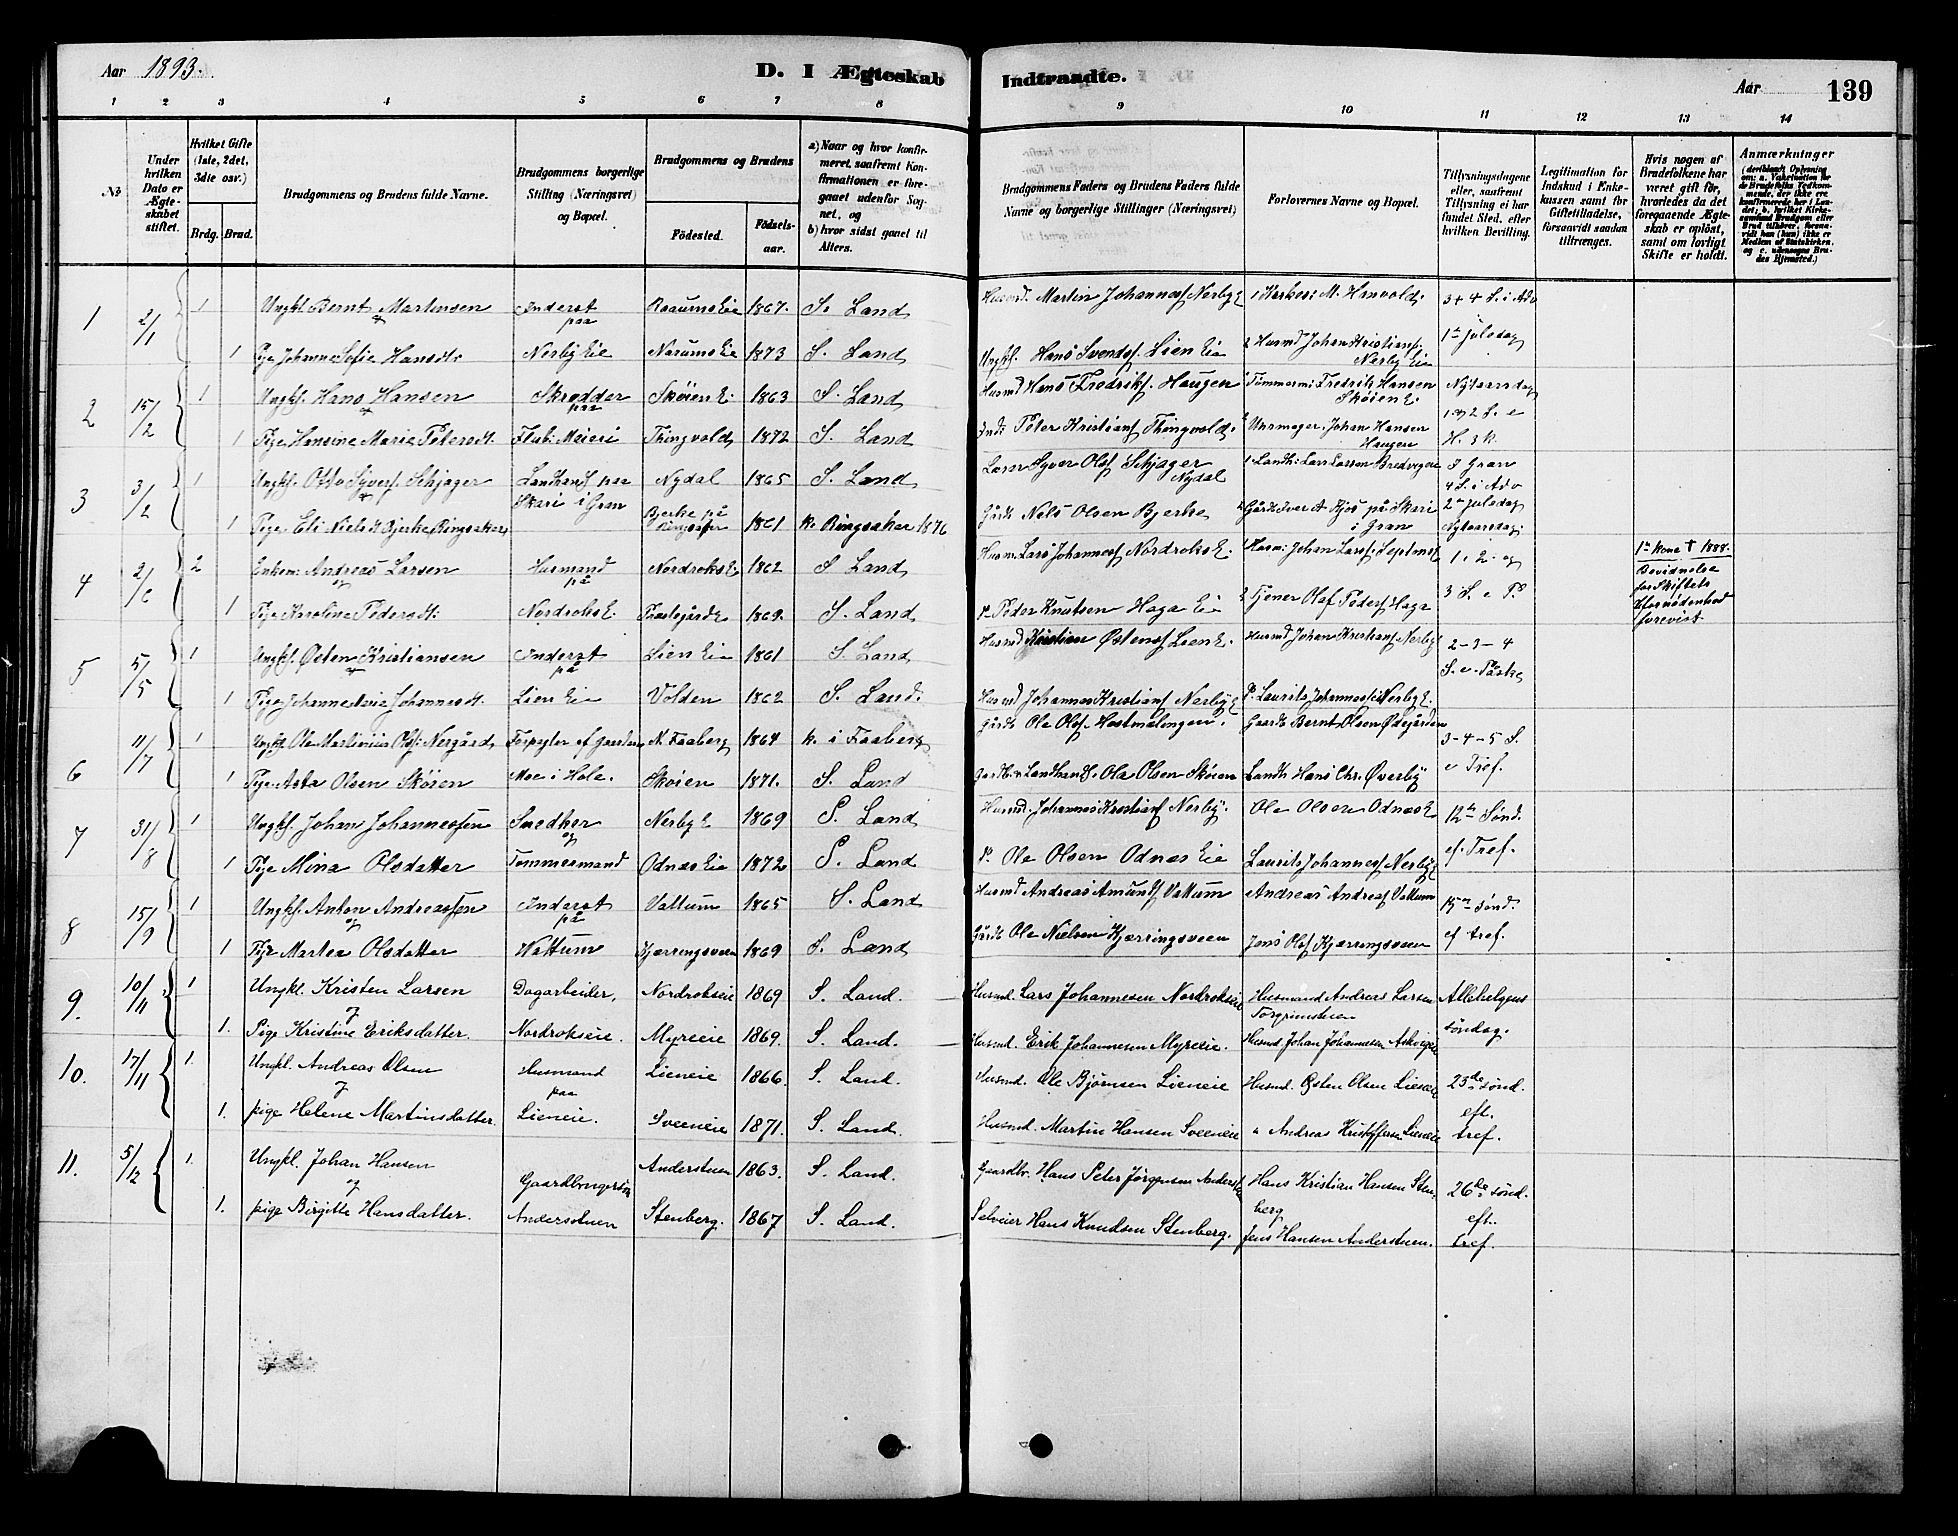 Aar 1893.
D. I Ægteskab Indtraadte.
Aar 139
1 2 3 4 5 6 7 8 9 10 11 12 13 14
№
Under hvilken Dato er Ægteskabet stiftet.
Hvilket Gifte (1ste, 2det, 3die osv.)
Brdg. Brud.
Brudgommens og Brudens fulde Navne.
Brudgommens borgerlige Stilling (Næringsvei) og Bopæl.
Brudgommens og Brudens
Fødested. Fødselsaar.
a) Naar og hvor konfirmeret, saafremt Konfirmationen er foregaaet udenfor Sognet, og
b) hvor sidst gaaet til Alters.
Brudgommens Faders og Brudens Faders fulde Navne og borgerlige Stillinger (Næringsvei)
Forlovernes Navne og Bopæl.
Tillysningsdagene eller, saafremt Tillysning ei har fundet Sted, efter hvilken Bevilling.
Legitimation for Indskud i Enkekassen samt for Giftetilladelse, forsaavidt saadan tiltrænges.
Hvis nogen af Brudefolkene har været gift før, hvorledes da det foregaaende Ægteskab er opløst, samt om lovligt Skifte er holdt.
Anmærkninger
1 2/1 1 Ungkl. Bernt Martensen Inderst paa Raaums Eie 1867. S. Land Husmd. Martin Johannesf Nerby E 1 Kirkes: M. Hanvold. 3 + 4 S. i Adv
og
1 Pige Johanne Sofie Hansdtr Nerby Eie Narums Eie 1873 S. Land Ungkf. Hans Svendsf. Lien Eie 2 Husmd Johan Kristiansf. Nerby Eie 1te Juledag
2 15/2 1 Ungkf. Hans Hansen Skrædder paa Skøien E. 1863 S. Land Husmd Hans Fredriksf. Haugen 1 Tømmerm: Fredrik Hansen Skøien E. Nytaarsdag
og
1 Pige Hansine Marie Petersdt. Flub: Meieri Thingvold 1872 S. Land Ind: Peter Kristiansf Thingvold. 2 Urmager. Johan Hansen Haugen 1 og 2 S. e H. 3 K.
3 3/2 1 Ungkf. Otto Syversf. Schjager Landhandl paa Nydal 1865 S. Land Syver Olsf Schjager Nydal 1 Landh: Lars Larsen Bredvegen 3 Gran 4 S. i Adv
og Skari i Gran
1 Pige. Eli Nielsdt Bjerke Ringsaker Bjerke på Ringsaker 1861 K. Ringsaker 1876 Gårdb Nels Olsen Bjerke 2 Gårdb Iver A Kjos på Skari i Gran 2den Juledag Nytaarsdag.
4 2/6 2 Enkem: Andreas Larsen Husmand på Nordroks E. 1862 S Land Husm: Lars Johannesf Nordroks E. 1 Husm: Johan Larsf. 1. 2. og 1te Kone † 1888.
og Bevidnelse
1 Pige Karoline Pedersdt: Nordroks E. Prestegårds 1869. S. Land P. Peder Knutsen Haga Eie 2 Tjener Olaf Pedersf Haga 3 S. e Ps for Skiftets Ufornødenhed forevist.
5 5/5 1 Ungkf. Østen Kristiansen Inderst på Lien Eie 1861 S. Land Husmd Kristian Østensf Lien E. Husmd Johan Kristiansf Nerby 2 - 3 - 4
og
1 Pige Johanne Marie Johannesdt. Lien Eie Volden 1862 S. Land. Husmd Johannes Kristiansf Nerby E P. Laurits Johannesf: Nerby E. S. e. Påske
6 11/7 1 Ungkf Ole Martinius Olsf: Nergård Forpagter af Gaarden N. Faaberg 1864 K. i Faaberg Gårdb Ole Olsf. Gaardb Bernt Olsen Ødegården 3 - 4 - 5 S.
1 Pige Asta Olsen Skøien Moe i Hole. Skøien 1871. S. Land Gardb. & Landhandl. Ole Olsen Skøien Landh Hans Chr. Øverby e Tref.
7 31/8 1 Ungkf. Johan Johannessen Snedker og Nerby E 1869 S. Land Husmd. Johannes Kristiansf Nerby. Ole Olsen Odnæs E 12te Sønd.
1 Pige Mina Olsdatter Tømmermand Odnæs Eie 1872 S. Land P. Ole Olsen Odnæs Eie Laurits Johannesf Nerby E ef. Tref.
8 15/9 1 Ungkf. Anton Andreassen Inderst på Vattum 1865 S. Land Husmd Andreas Amundsf Vattum Andreas Andreasf Vattum 15de sønd.
og
1 Pige Martea Olsdatter Wattum Kjærringsveen 1869 S. Land Gårdb Ole Nielsen Kjærringsveen Jens Olsf Kjærringsveen ef tref.
9. 10/11 1 Ungkl. Kristen Larsen Dagarbeider, Nordrokseie 1869 S. Land. Husmd. Lars Johannesen Nordrokseie Husmand Andreas Larsen Torgrimstuen Allehelgens
og
1. Pige Kristine Eriksdatter. Nordrokseie. Myreeie 1869. S. Land. Husmd. Erik Johannesen Myreeie. Husmd Johan Johannesen søndag.
10. 17/11 1. Ungkl. Andreas Olsen Husmand paa Lieneie 1866. S. Land. Husmd. Ole Bjørnsen Lieneie Husmd. Østen Olsen Lieneie 23de sønd.
og
1. pige Helene Martinsdatter. Lieneie. Sveeneie 1871. S. Land. Husmd. Martin Hansen Sveeneie " Andreas Kristoffersen Lieneie eft. tref.
11. 5/12 1. Ungkl. Johan Hansen Gaardbrugersøn Anderstuen 1863. S. Land. Gaardbr. Hans Peter Jørgensen Anderst Hans Kristian Hansen Stenberg 26de sønd.
og
1. pige Birgitte Hansdatter. Anderstuen Stenberg. 1867 S. Land. Selveier Hans Knudsen Stenberg. Jens Hansen Anderstuen. eft. tref.